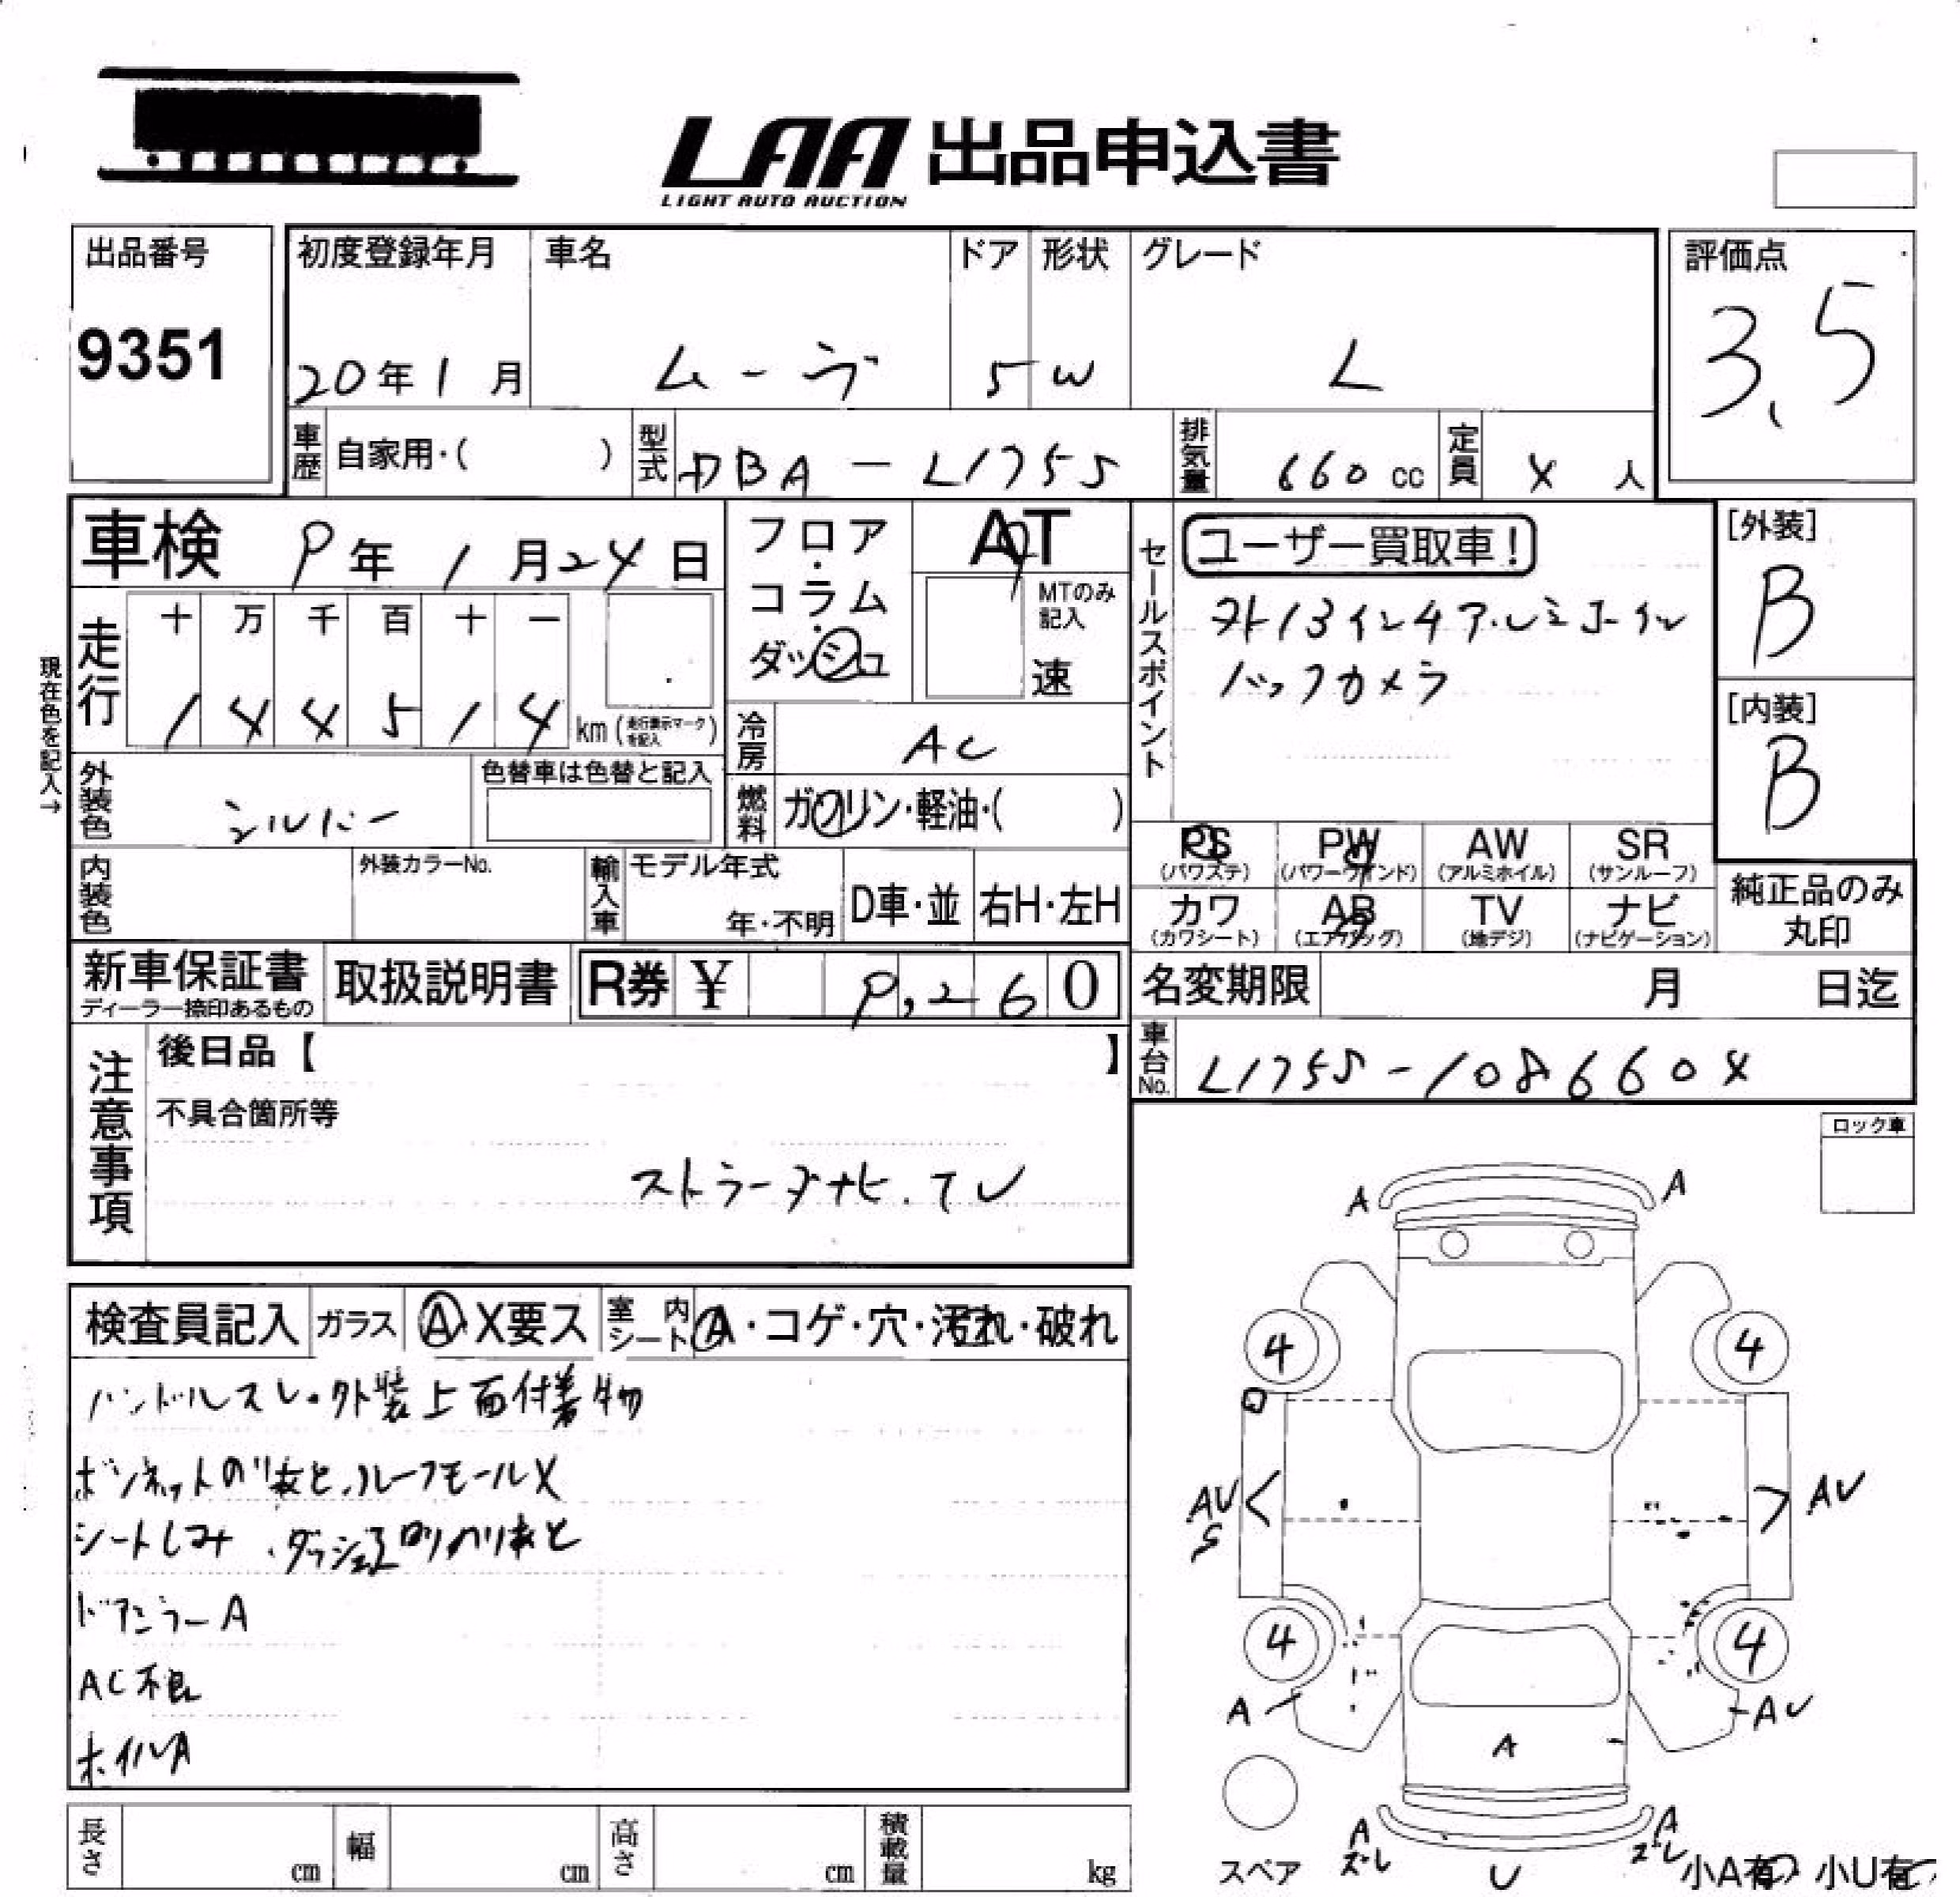 LAA 出品申込書
LIGHT AUTO AUCTION
出品番号
9351
初度登録年月
20年1月
車名
ムーヴ
ドア
5
形状
W
グレード
L
評価点
3.5
車歴
自家用・( )
型式
DBA-L175S
排気量
660cc
定員
4人
車検
9年1月24日
フロア・コラム・ダッシュ
AT
MTのみ記入
速
セールスポイント
ユーザー買取車!
外13インチアルミホイル
バックカメラ
[外装]
B
[内装]
B
現在色を記入→
走行
十 万 千 百 十 一
1 4 4 5 1 4
km (走行表示マークを記入)
冷房
AC
外装色
シルバー
色替車は色替と記入
燃料
ガソリン・軽油・( )
PS
(パワステ)
PW
(パワーウインド)
AW
(アルミホイル)
SR
(サンルーフ)
カワ
(カワシート)
AB
(エアバッグ)
TV
(地デジ)
ナビ
(ナビゲーション)
純正品のみ
丸印
内装色
外装カラーNo.
輸入車
モデル年式
年・不明
D車・並
右H・左H
新車保証書
ディーラー捺印あるもの
取扱説明書
R券 ¥ 9,260
名変期限
月 日迄
車台No.
L175S-1086604
注意事項
後日品【 】
不具合箇所等
ストラーダナビ.TV
ロック車
検査員記入
ガラス
A・X要ス
室内シート
A・コゲ・穴・汚れ・破れ
ハンドルスレ・外装上面付着物
ボンネットのリあと.ルーフモールX
シートしみ・ダッシュ
ドアミラーA
AC不良
ホイルA
A
A
4
4
AU
S
AU
4
4
A
AU
A
A
ズレ
U
A
ズレ
スペア
小A有 小U有
長さ
cm
幅
cm
高さ
cm
積載量
kg